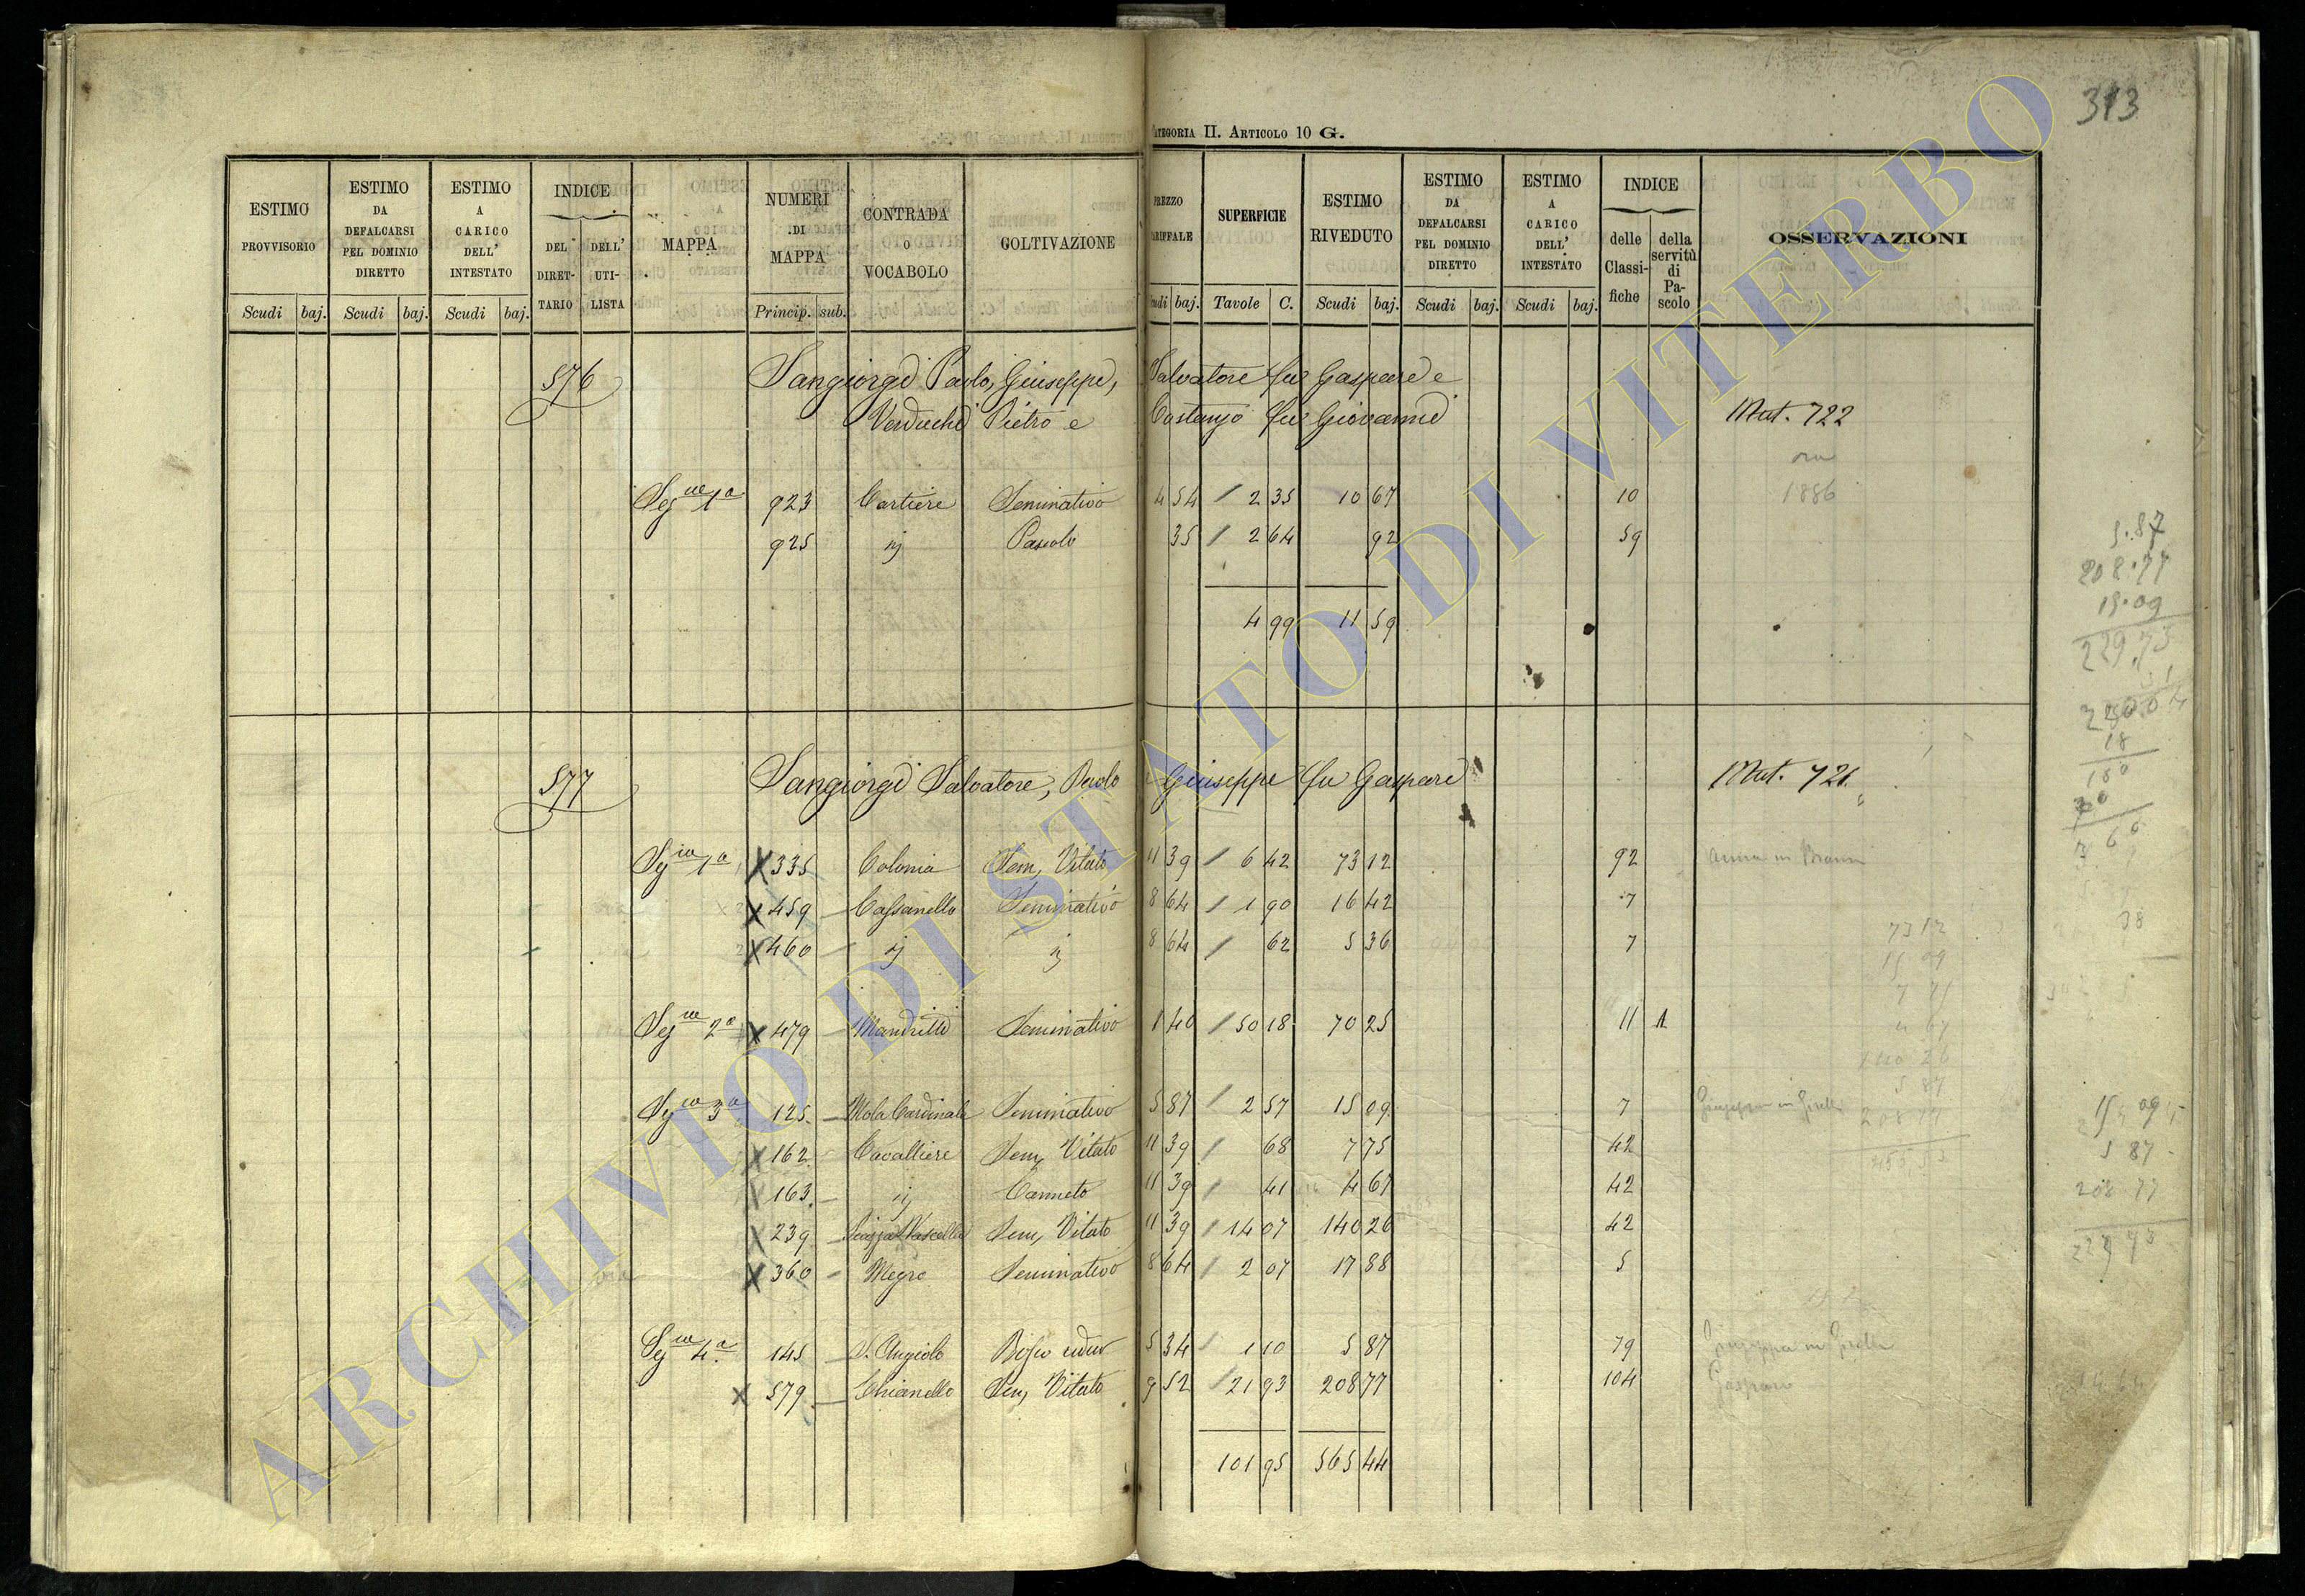 313
CATEGORIA II. ARTICOLO 10 G.
ESTIMO PROVVISORIO Scudi baj.
ESTIMO DA DEFALCARSI PEL DOMINIO DIRETTO Scudi baj.
ESTIMO A CARICO DELL' INTESTATO Scudi baj.
INDICE DEL DIRETTARIO DELL' UTILISTA
MAPPA
NUMERI DI MAPPA Princip. sub.
CONTRADA O VOCABOLO
COLTIVAZIONE
PREZZO TARIFFALE Scudi baj.
SUPERFICIE Tavole C.
ESTIMO RIVEDUTO Scudi baj.
ESTIMO DA DEFALCARSI PEL DOMINIO DIRETTO Scudi baj.
ESTIMO A CARICO DELL' INTESTATO Scudi baj.
INDICE delle Classifiche della servitù di Pascolo
OSSERVAZIONI
576 Sangiorgi Paolo, Giuseppe, Salvatore fu Gaspare e
Verduchi Pietro e Costanzo fu Giovanni Mut. 722
ora
1886
Segne 1a 923 Cartiere Seminativo 4 54 2 35 10 67 10
925 ij Pascolo 35 2 64 92 59
4 99 11 59
577 Sangiorgi Salvatore, Paolo e Giuseppe fu Gaspare Mut. 721.
Segne 1a 335 Colonia Sem, Vitato 11 39 6 42 73 12 92
459 Cassanello Seminativo 8 64 1 90 16 42 7
460 ij ij 8 64 62 5 36 7
Segne 2a 479 Mandrille Seminativo 1 40 50 18 70 25 11 A
Segne 3a 125 Mola Cardinale Seminativo 5 87 2 57 15 09 7
162 Cavalliere Sem, Vitato 11 39 68 7 75 42
163 ij Canneto 11 39 41 4 67 42
239 Vascella Sem, Vitato 11 39 14 07 140 26 42
360 Megro Seminativo 8 64 2 07 17 88 5
Segne 4a 145 S. Angiolo 5 34 1 10 5 87 79
579 Chianello Sem, Vitato 9 52 21 93 208 77 104
Gaspare
101 95 565 44
5.87
208.77
15.09
229.73
18
73 12
15 09
7 75
4 67
140 26
5 87
208 77
15 09
5 87
208 77
229 73
ARCHIVIO DI STATO DI VITERBO